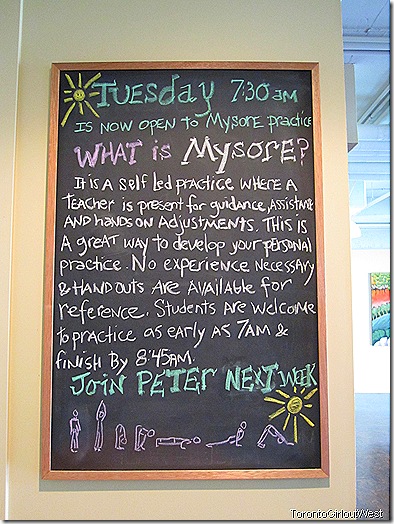 TUESDAY 7:30 AM
IS NOW OPEN TO MYSORE PRACTICE
WHAT IS MYSORE?
IT IS A SELF LED PRACTICE WHERE A
TEACHER IS PRESENT FOR GUIDANCE, ASSISTANCE
AND HANDS ON ADJUSTMENTS. THIS IS
A GREAT WAY TO DEVELOP YOUR PERSONAL
PRACTICE. NO EXPERIENCE NECESSARY
& HANDOUTS ARE AVAILABLE FOR
REFERENCE. STUDENTS ARE WELCOME
TO PRACTICE AS EARLY AS 7AM &
FINISH BY 8:45AM.
JOIN PETER NEXT WEEK
TorontoGirloutWest